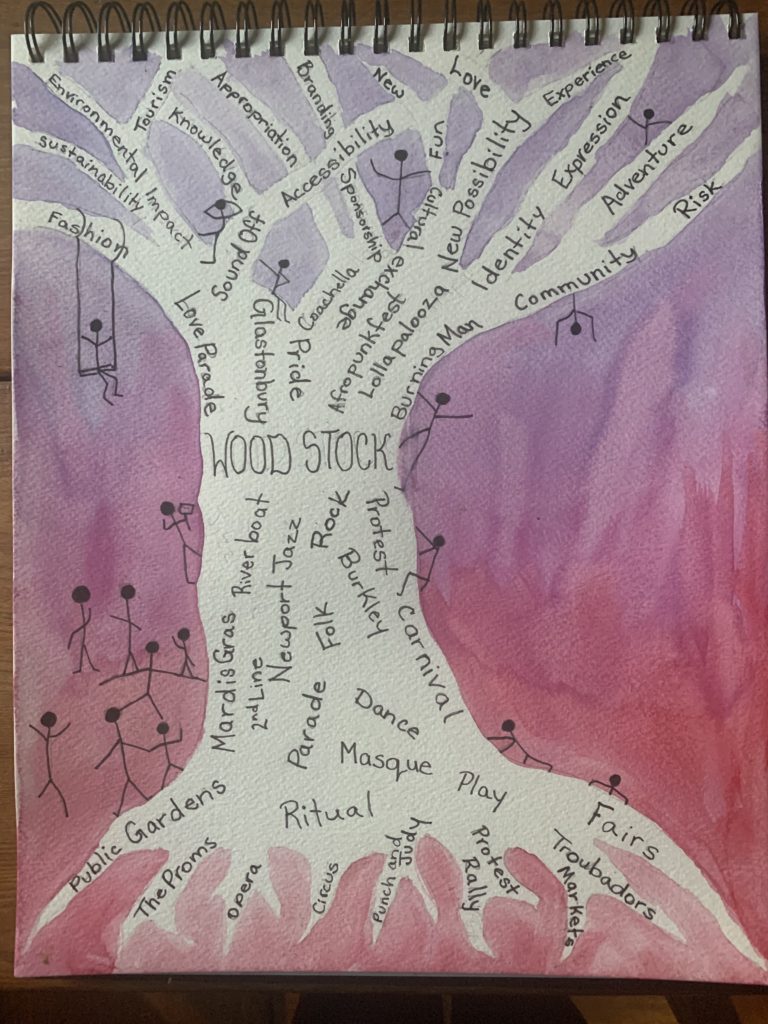 Environmental Impact
Tourism
Appropriation
Branding
New
Love
Experience
sustainability
Knowledge
Accessibility
Fun
Expression
Adventure
Risk
Fashion
Sound Off
Sponsorship
Cultural exchange
New Possibility
Identity
Community
Love Parade
Glastonbury
Pride
Coachella
Afropunkfest
Lollapalooza
Burning Man
WOODSTOCK
Riverboat
Newport Jazz
Rock
Protest
Burkley
Folk
Carnival
Mardis Gras
2nd Line
Parade
Dance
Masque
Play
Ritual
Public Gardens
The Proms
Opera
Circus
Punch and
Judy
Protest
Rally
Fairs
Troubadors
Markets